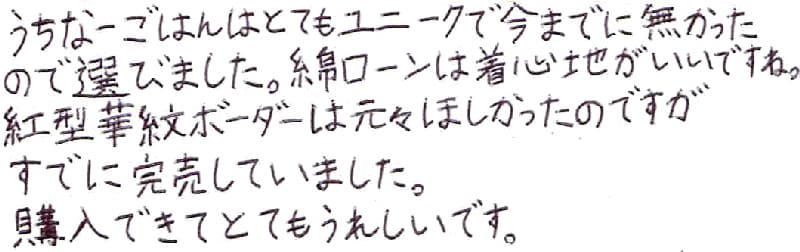 うちなーごはんはとてもユニークで今までに無かった
ので選びました。綿ローンは着心地がいいですね。
紅型華紋ボーダーは元々ほしかったのですが
すでに完売していました。
購入できてとてもうれしいです。